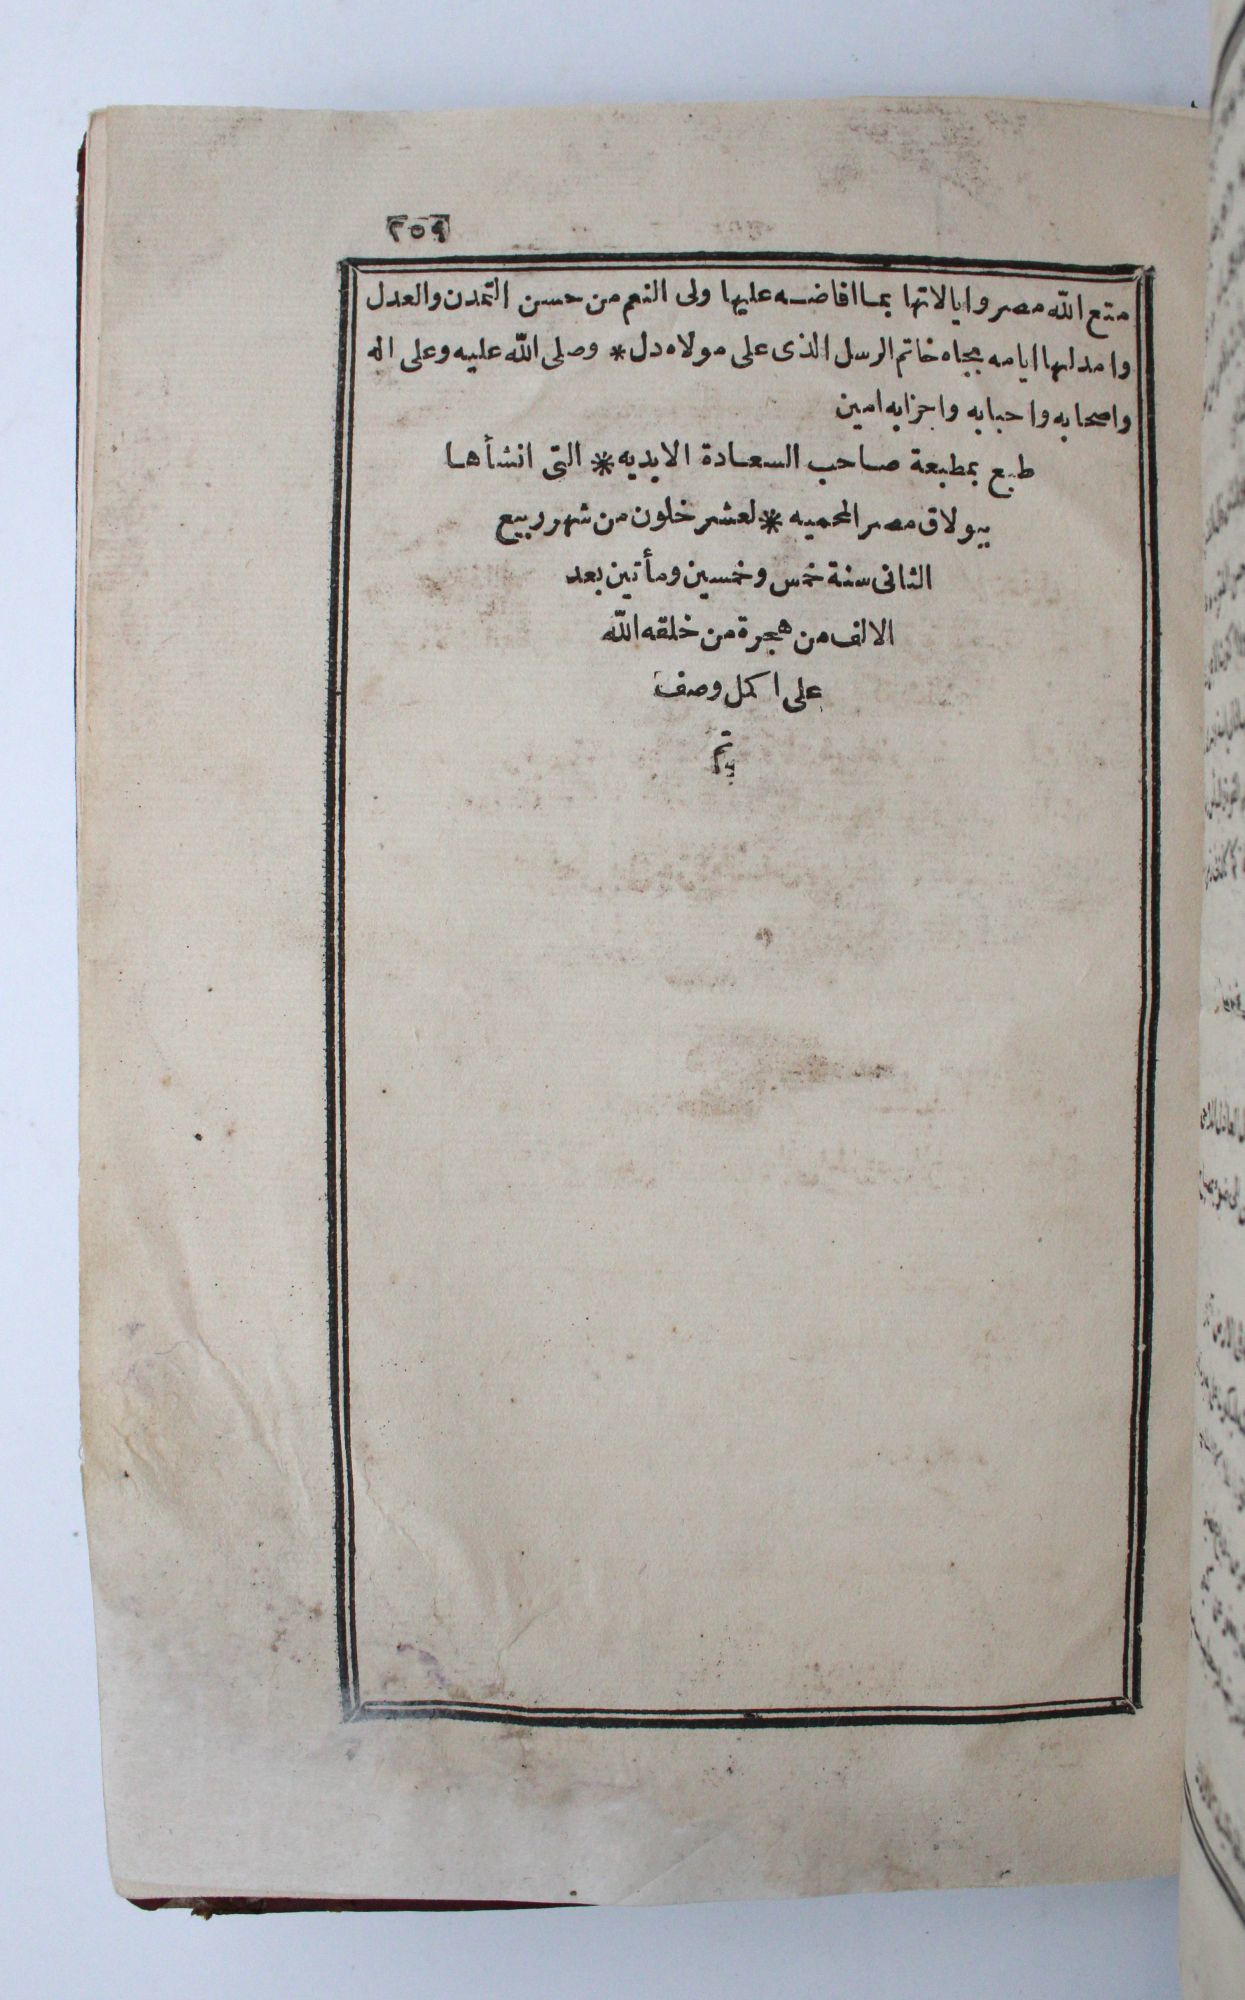 ٢٥٩
متع الله مصر وايالاتها بما افاضه عليها ولى النعم من حسن التمدن والعدل
وامد لها ايامه بجاه خاتم الرسل الذى على مولاه دل * وصلى الله عليه وعلى اله
واصحابه واحبابه واحزابه امين
طبع بمطبعة صاحب السعادة الابديه * التى انشأها
ببولاق مصر المحميه * لعشر خلون من شهر ربيع
الثانى سنة خمس وخمسين ومأتين بعد
الالف من هجرة من خلقه الله
على اكمل وصف
تم